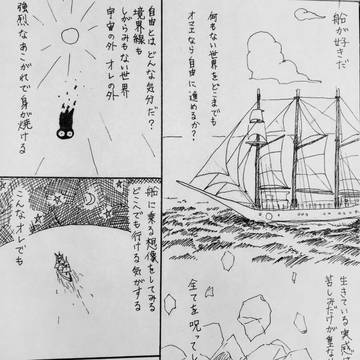 船が好きだ
何もない世界をどこまでも
オマエなら自由に進めるか?
生きている実感
苦しみだけが
全てを呪って
自由とはどんな気分だ?
境界線も
しがらみもない世界
宇宙の外 オレの外
強烈なあこがれで身が焼ける
船に乗る想像をしてみる
どこへでも行ける気がする
こんなオレでも